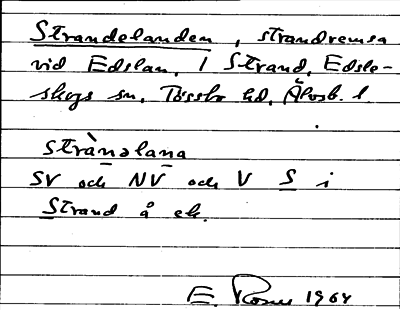 Strandelanden, strandremsa
vid Edslan, 1 Strand, Edsle-
skogs sn, Tössbo hd, Älvsb. l.
strànəlana
SV och NV och V S i
Strand å ek.
E. 1964